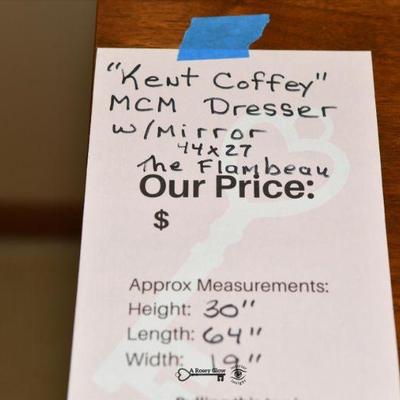 "Kent Coffey"
MCM Dresser
w/Mirror
44x27
The Flambeau
Our Price:
$
Approx Measurements:
Height: 30"
Length: 64"
Width: 19"
A Rosey Glow